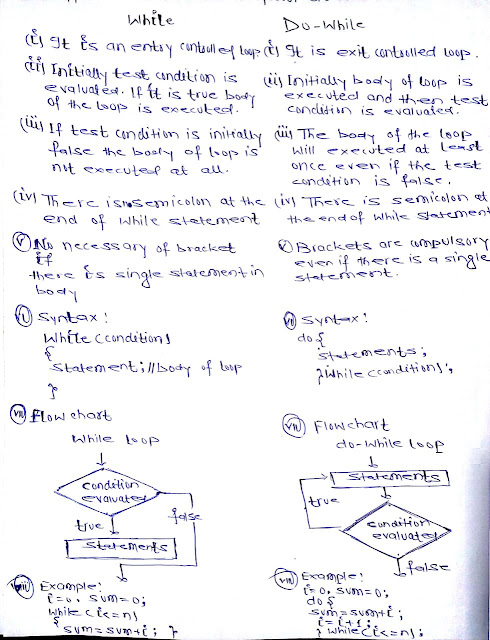 While
(i) It is an entry controlled loop
(ii) Initially test condition is
evaluated. If it is true body
of the loop is executed.
(iii) If test condition is initially
false the body of loop is
not executed at all.
(iv) There is no semicolon at the
end of while statement
(v) No necessary of bracket
if
there is single statement in
body
(vi) Syntax:
While (condition)
{
Statement; // body of loop
}
(vii) Flow chart
While loop
condition
evaluated
false
true
Statements
(viii) Example:
i=0, sum=0;
While (i<=n)
{ sum=sum+i; }
Do-While
(i) It is exit controlled loop.
(ii) Initially body of loop is
executed and then test
condition is evaluated.
(iii) The body of the loop
will executed at least
once even if the test
condition is false.
(iv) There is semicolon at
the end of while statement
(v) Brackets are compulsory
even if there is a single
statement.
(vi) Syntax:
do {
statements;
} While (condition);
(vii) Flow chart
do-while loop
Statements
true
condition
evaluated
false
(viii) Example:
i=0, sum=0;
do {
sum=sum+i;
i=i+1;
} while (i<=n);